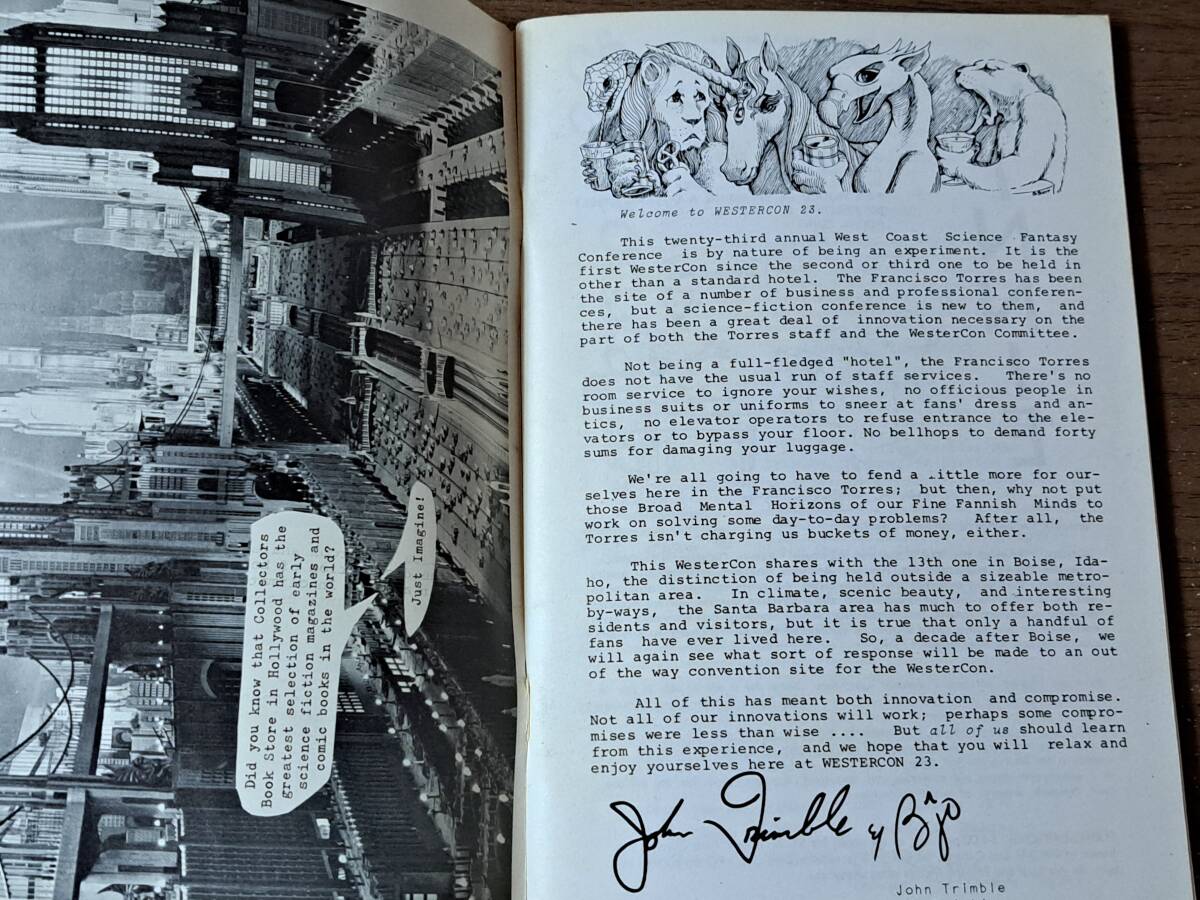 Did you know that Collectors
Book Store in Hollywood has the
greatest selection of early
science fiction magazines and
comic books in the world?
Just Imagine!
Welcome to WESTERCON 23.
This twenty-third annual West Coast Science Fantasy
Conference is by nature of being an experiment. It is the
first WesterCon since the second or third one to be held in
other than a standard hotel. The Francisco Torres has been
the site of a number of business and professional conferen-
ces, but a science-fiction conference is new to them, and
there has been a great deal of innovation necessary on the
part of both the Torres staff and the WesterCon Committee.
Not being a full-fledged "hotel", the Francisco Torres
does not have the usual run of staff services. There's no
room service to ignore your wishes, no officious people in
business suits or uniforms to sneer at fans' dress and an-
tics, no elevator operators to refuse entrance to the ele-
vators or to bypass your floor. No bellhops to demand forty
sums for damaging your luggage.
We're all going to have to fend a little more for our-
selves here in the Francisco Torres; but then, why not put
those Broad Mental Horizons of our Fine Fannish Minds to
work on solving some day-to-day problems? After all, the
Torres isn't charging us buckets of money, either.
This WesterCon shares with the 13th one in Boise, Ida-
ho, the distinction of being held outside a sizeable metro-
politan area. In climate, scenic beauty, and interesting
by-ways, the Santa Barbara area has much to offer both re-
sidents and visitors, but it is true that only a handful of
fans have ever lived here. So, a decade after Boise, we
will again see what sort of response will be made to an out
of the way convention site for the WesterCon.
All of this has meant both innovation and compromise.
Not all of our innovations will work; perhaps some compro-
mises were less than wise .... But all of us should learn
from this experience, and we hope that you will relax and
enjoy yourselves here at WESTERCON 23.
John Trimble & Bjo
John Trimble